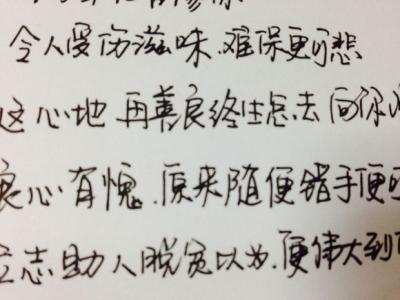 令人受伤滋味.难保更可悲
这心地再善良终生怎去向你
良心有愧.原来随便错手便可
立志助人脱贫以为.便伟大到